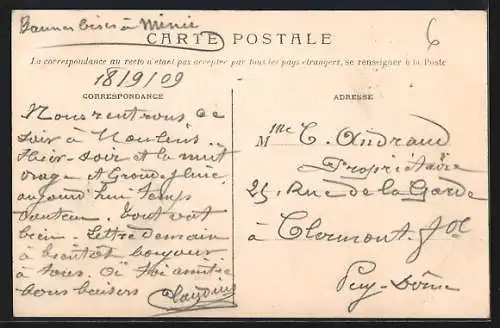 bises à Minie
CARTE POSTALE
La correspondance au recto n'étant pas acceptée par tous les pays étrangers, se renseigner à la Poste
6
18/9/09
CORRESPONDANCE
Nous rentrons ce
soir à Moulins.
Hier soir et la nuit
orage et Grande pluie,
aujourd'hui temps
Tout va
bien. Lettre demain
à bientôt bonjour
à tous.
bons baisers
ADRESSE
Mme C. Andraud
Propriétaire
25, Rue de la Garde
à Clermont-fd
Puy-Dôme